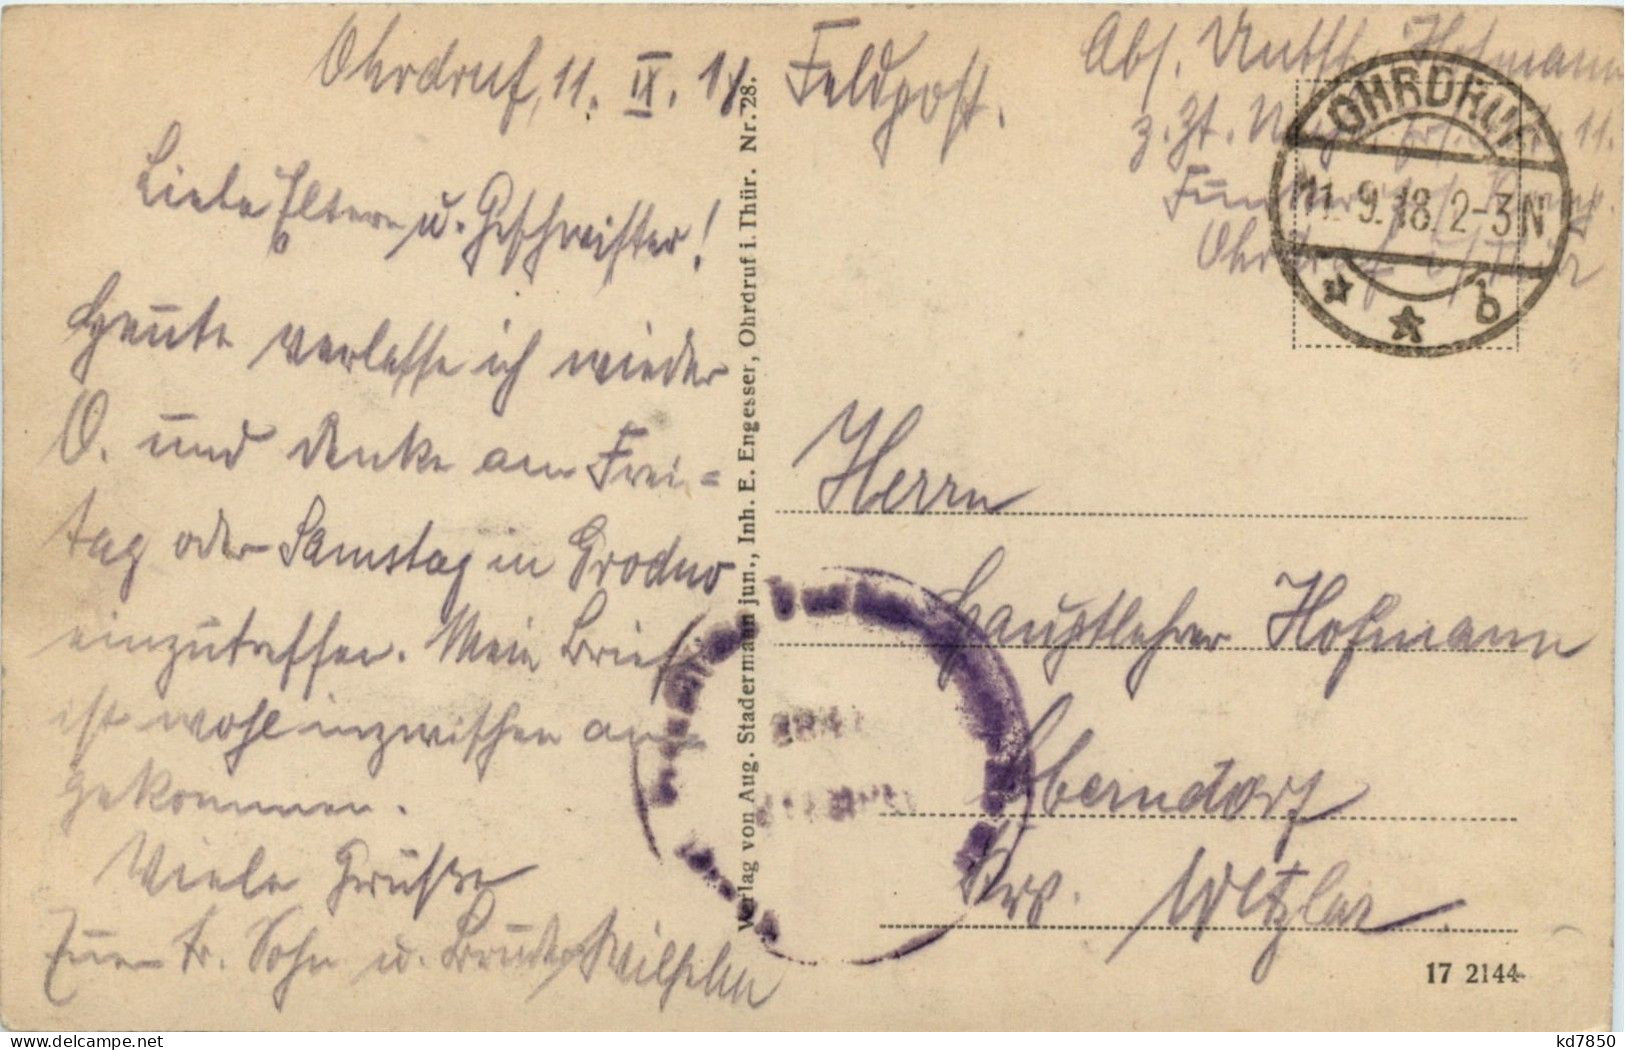 Ohrdruf, 11. IX. 18
Liebe Eltern u. Geschwister!
Heute verlasse ich wieder
O. und denke am Frei=
tag oder Samstag in Grodno
einzutreffen. Mein Brief
ist wohl inzwischen an-
gekommen.
Viele Grüsse
Euer tr. Sohn u. Bruder Wilhelm
Verlag von Aug. Stadermann jun., Inh. E. Engesser, Ohrdruf i. Thür. Nr. 28.
Feldpost.
Abs. Hofmann
z. Zt. 11.
Ohrdruf i/Thür
OHRDRUF
11.9.18.2-3N
b
Herrn
Hauptlehrer Hofmann
Oberndorf
Krs. Wetzlar.
17 2144
kd7850